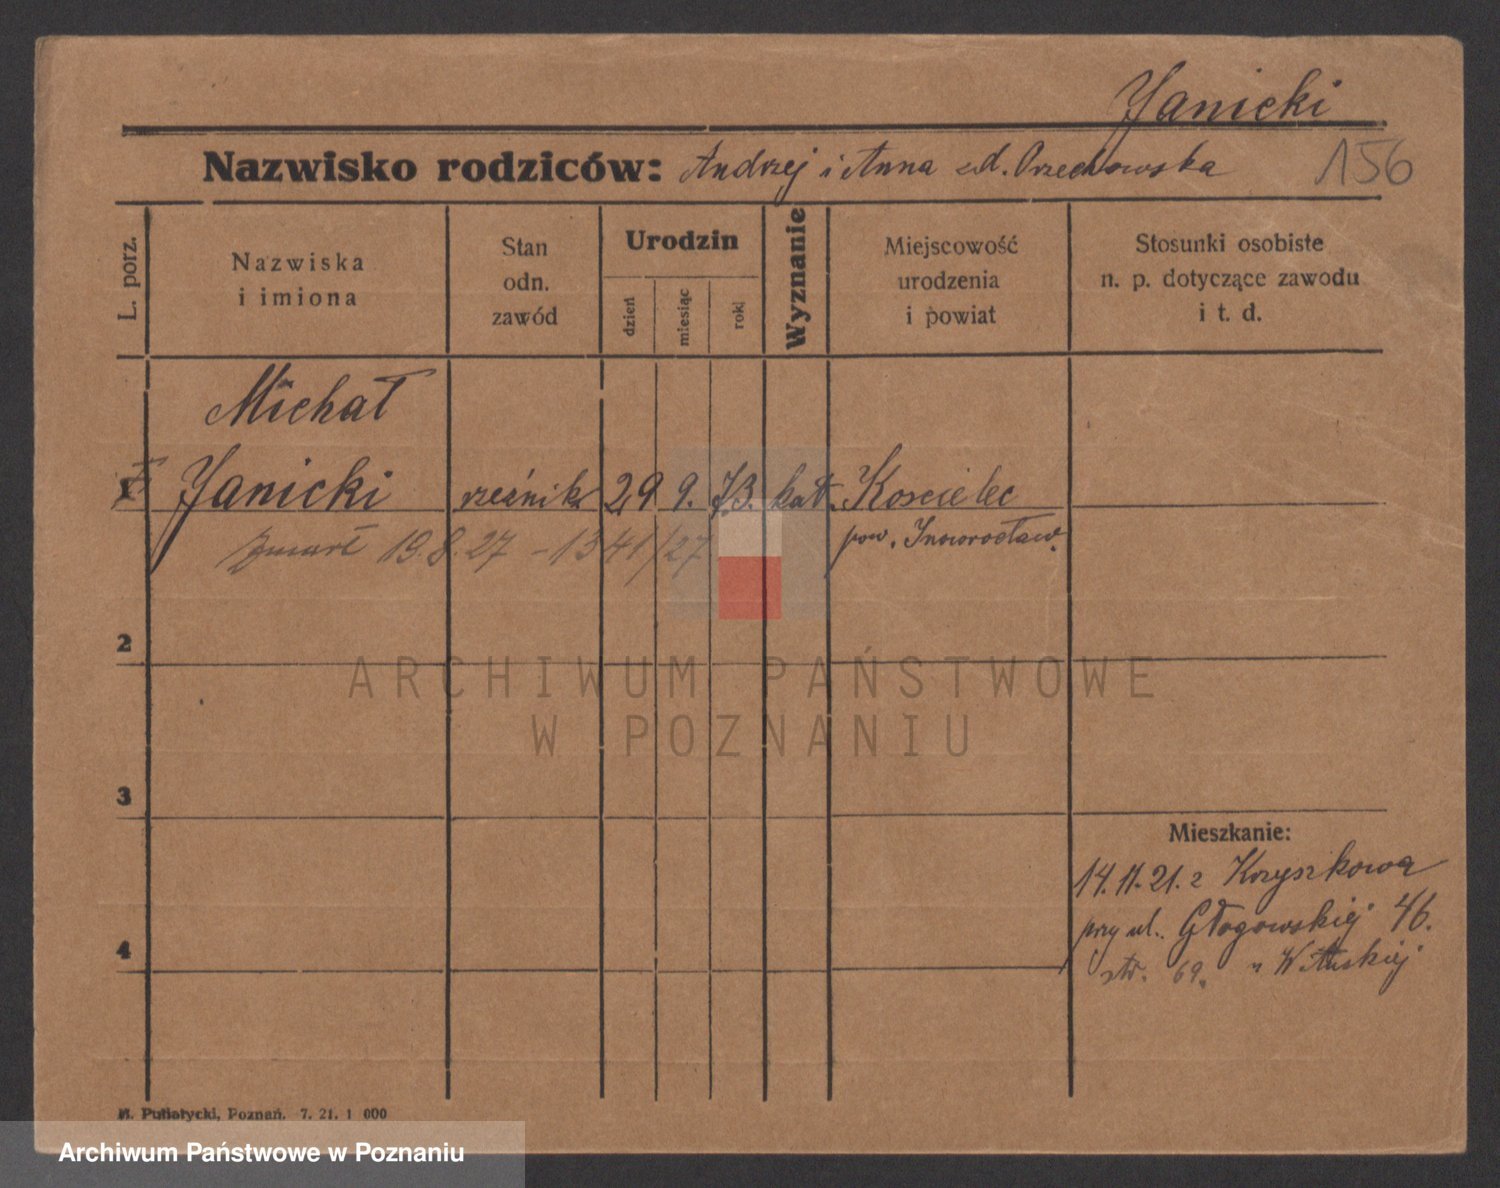 Janicki
Nazwisko rodziców: Andrzej i Anna zd. Orzechowska 156
L. porz.
Nazwiska
i imiona
Stan
odn.
zawód
Urodzin
dzień
miesiąc
rok
Wyznanie
Miejscowość
urodzenia
i powiat
Stosunki osobiste
n. p. dotyczące zawodu
i t. d.
Michał
1 Janicki rzeźnik 29 9. 73. kat. Koscielec
zmarł 19.8.27 - 1341/27 pow. Inowrocław.
2
ARCHIWUM PAŃSTWOWE
W POZNANIU
3
Mieszkanie:
14.11.21. z Krzyszkowa
przy ul. Głogowskiej 46.
4
str. 69.
Poznań. 7. 21. 1 000
Archiwum Państwowe w Poznaniu